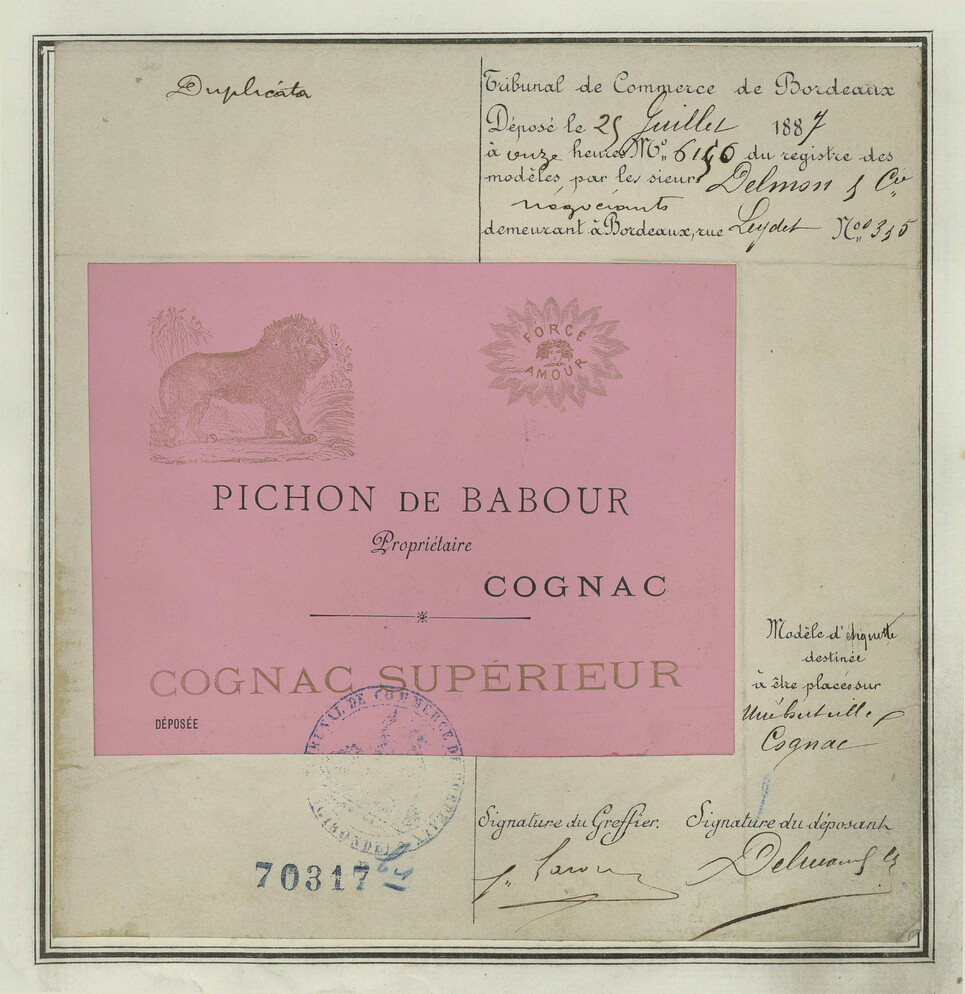 Duplicata
Tribunal de Commerce de Bordeaux
Déposé le 25 Juillet 1887
à onze heures Nº 6156 du registre des
modèles par les sieurs Delmon & Cie
négociants
demeurant à Bordeaux, rue Leydet Nº 3 5
FORCE
AMOUR
PICHON DE BABOUR
Propriétaire
COGNAC
COGNAC SUPÉRIEUR
DÉPOSÉE
Modèle d'étiquette
destinée
à être placée sur
Une bouteille
Cognac
TRIBUNAL DE COMMERCE DE BORDEAUX
(GIRONDE)
Signature du Greffier. Signature du déposant
70317